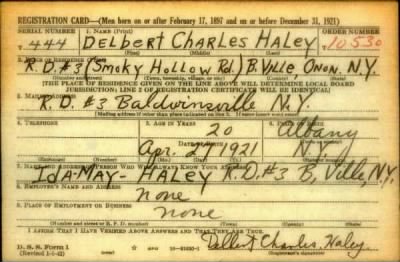 REGISTRATION CARD—(Men born on or after February 17, 1897 and on or before December 31, 1921)
SERIAL NUMBER 1. NAME (Print) ORDER NUMBER
444 DELBERT CHARLES HALEY 10530
(First) (Middle) (Last)
R.D. #3 (Smoky Hollow Rd.) B.Ville, Onon. N.Y.
(Number and street) (Town, township, village, or city) (County) (State)
[THE PLACE OF RESIDENCE GIVEN ON THE LINE ABOVE WILL DETERMINE LOCAL BOARD
JURISDICTION; LINE 2 OF REGISTRATION CERTIFICATE WILL BE IDENTICAL]
3. MAILING ADDRESS
R.D. #3 Baldwinsville N.Y.
[Mailing address if other than place indicated on line 2. If same insert word same]
4. TELEPHONE 5. AGE IN YEARS 6. PLACE OF BIRTH
20 Albany
DATE OF BIRTH
Apr. 27 1921 N.Y.
7. NAME AND ADDRESS OF PERSON WHO WILL ALWAYS KNOW YOUR ADDRESS
Ida-May-HALEY R.D.#3 B,Ville, N.Y.
8. EMPLOYER'S NAME AND ADDRESS
none
9. PLACE OF EMPLOYMENT OR BUSINESS
none
(Number and street or R. F. D. number) (Town) (County) (State)
I AFFIRM THAT I HAVE VERIFIED ABOVE ANSWERS AND THAT THEY ARE TRUE.
D. S. S. Form 1
(Revised 1-1-42) Delbert Charles Haley
(Registrant's signature)